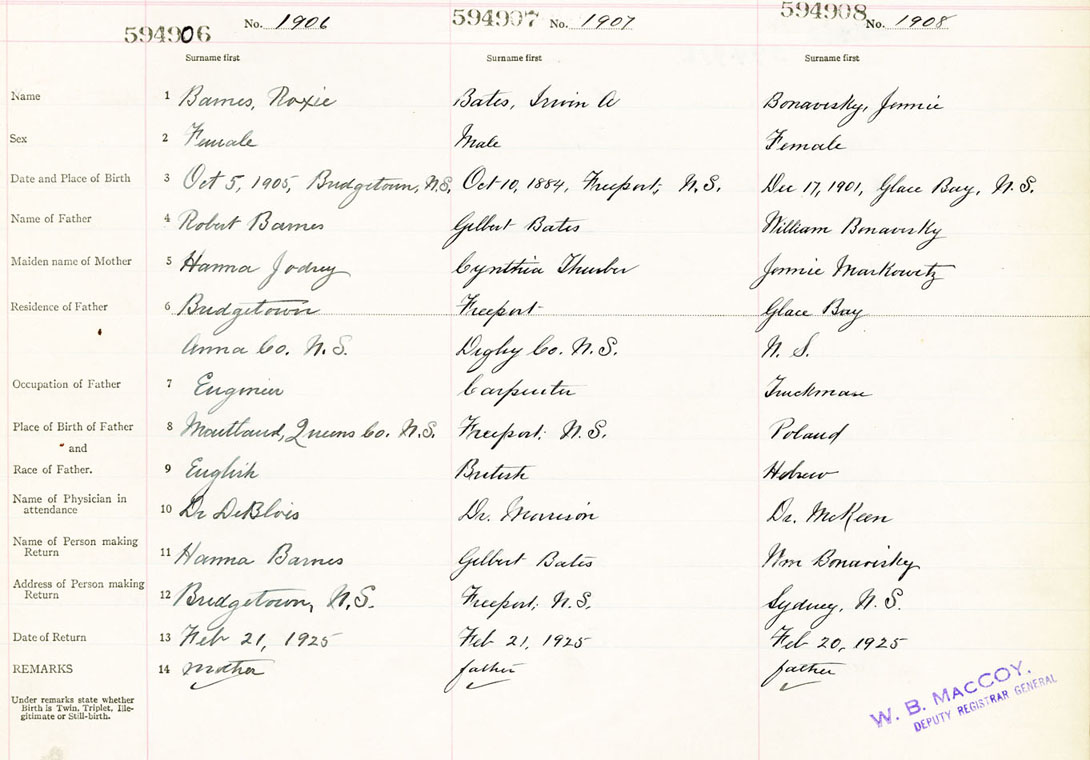 594906 No. 1906 594907 No. 1907 594908 No. 1908
Surname first Surname first Surname first
Name 1 Barnes, Roxie Bates, Irvin A Bonavisky, Jennie
Sex 2 Female Male Female
Date and Place of Birth 3 Oct 5, 1905, Bridgetown, N.S. Oct 10, 1884, Freeport, N.S. Dec 17, 1901, Glace Bay, N.S.
Name of Father 4 Robert Barnes Gilbert Bates William Bonavisky
Maiden name of Mother 5 Hanna Jodrey Cynthia Thurber Jennie Markowitz
Residence of Father 6 Bridgetown Freeport Glace Bay
Anna Co. N.S. Digby Co. N.S. N. S.
Occupation of Father 7 Engineer Carpenter Truckman
Place of Birth of Father 8 Maitland, Queens Co. N.S. Freeport, N.S. Poland
and
Race of Father. 9 English British Hebrew
Name of Physician in
attendance 10 Dr DeBlois Dr. Morrison Dr. McKeen
Name of Person making
Return 11 Hanna Barnes Gilbert Bates Wm Bonavisky
Address of Person making
Return 12 Bridgetown, N.S. Freeport, N.S. Sydney, N.S.
Date of Return 13 Feb 21, 1925 Feb 21, 1925 Feb 20, 1925
REMARKS 14 mother father father
Under remarks state whether
Birth is Twin, Triplet, Ille-
gitimate or Still-birth.
W. B. MACCOY.
DEPUTY REGISTRAR GENERAL